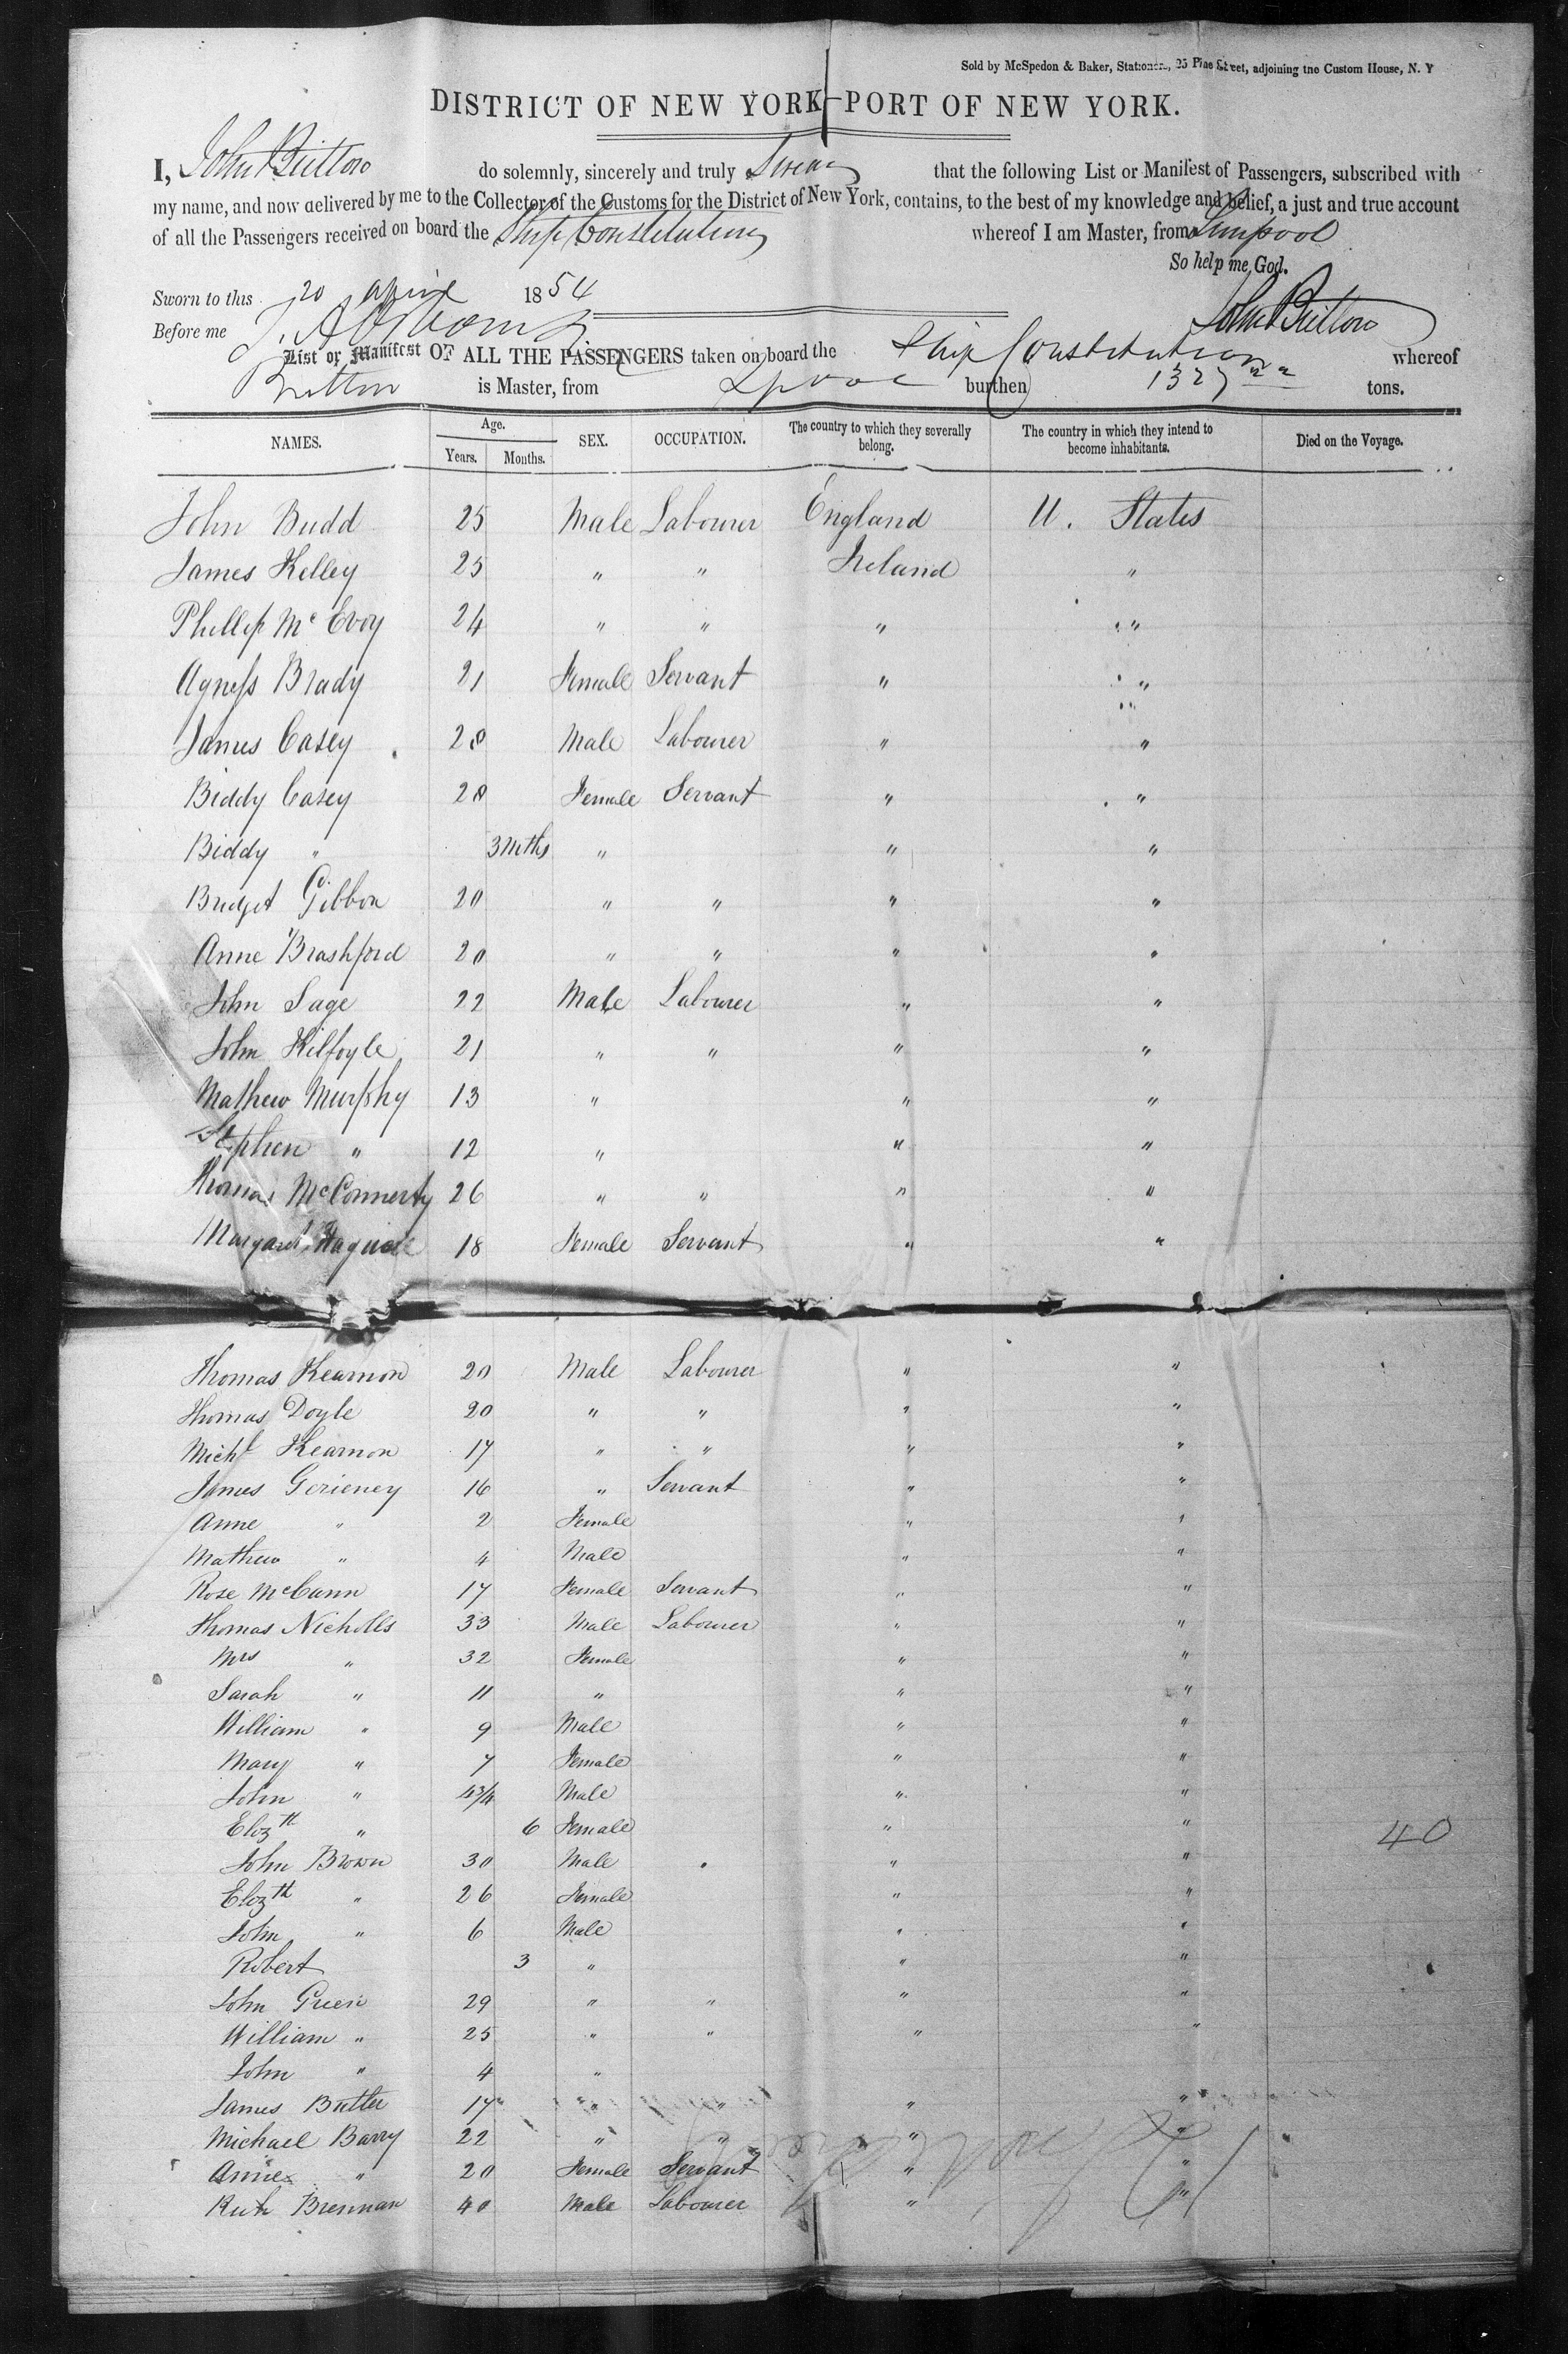 Sold by McSpedon & Baker, Stationers, 25 Pine Street, adjoining the Custom House, N. Y
DISTRICT OF NEW YORK—PORT OF NEW YORK.
I, John Britton do solemnly, sincerely and truly Swear that the following List or Manifest of Passengers, subscribed with
my name, and now delivered by me to the Collector of the Customs for the District of New York, contains, to the best of my knowledge and belief, a just and true account
of all the Passengers received on board the Ship Constitution whereof I am Master, from Liverpool
So help me God.
Sworn to this 20 April 1854 John Britton
Before me
List or Manifest OF ALL THE PASSENGERS taken on board the Ship Constitution whereof
Britton is Master, from Lpool burthen 1327 tons.
NAMES. Age. Years. Months. SEX. OCCUPATION. The country to which they severally belong. The country in which they intend to become inhabitants. Died on the Voyage.
John Budd 25 Male Labourer England U. States
James Kelley 25 " " Ireland "
Phillip McEvoy 24 " " " "
Agness Brady 21 Female Servant " "
James Casey 28 Male Labourer " "
Biddy Casey 28 Female Servant " "
Biddy " 3 Mths " " "
Bridget Gibbon 20 " " " "
Anne Brashford 20 " " " "
John Sage 22 Male Labourer " "
John Kilfoyle 21 " " " "
Mathew Murphy 13 " " "
Stephen " 12 " " "
Thomas McConnerty 26 " " " "
Margaret 18 Female Servant " "
Thomas Kearnon 20 Male Labourer " "
Thomas Doyle 20 " " " "
Michl Kearnon 17 " " " "
James Gerieney 16 " Servant " "
Anne " 2 Female " "
Mathew " 4 Male " "
Rose McCann 17 Female Servant " "
Thomas Nicholls 33 Male Labourer " "
Mrs " 32 Female " "
Sarah " 11 " " "
William " 9 Male " "
Mary " 7 Female " "
John " 4 3/4 Male " "
Elizth " 6 Female " " 40
John Brown 30 Male " "
Elizth " 26 Female " "
John " 6 Male " "
Robert 3 " " "
John Green 29 " " " "
William " 25 " " " "
John " 4 "
James Butler 17 " " " "
Michael Barry 22 " " " "
Anne " 20 Female Servant " "
Brennan 40 Male Labourer " "